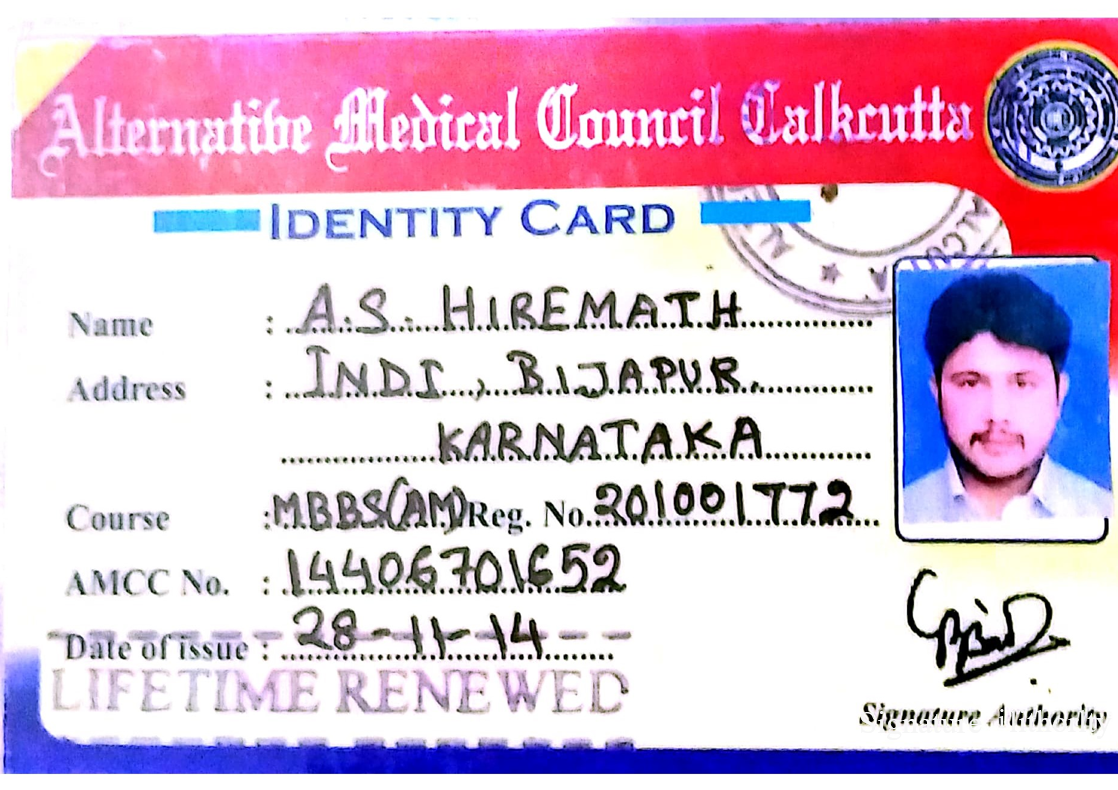 Alternative Medical Council Calkcutta
IDENTITY CARD
Name : A.S. HIREMATH
Address : INDI, BIJAPUR.
KARNATAKA
Course : MBBS(AM) Reg. No. 201001772
AMCC No. : 14406701652
Date of issue : 28-11-14
LIFETIME RENEWED
Signature Authority